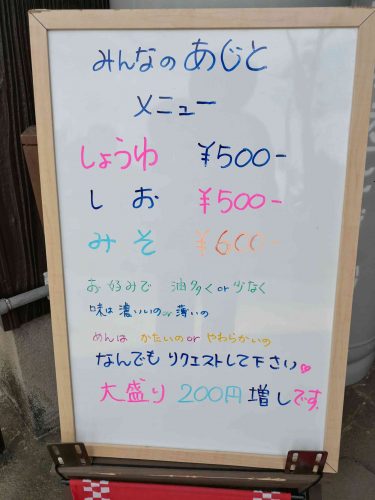 みんなの あじと
メニュー
しょうゆ ¥500-
しお ¥500-
みそ ¥600-
お好みで 油多く or 少なく
味は 濃いいの or 薄いの
めんは かたいの or やわらかいの
なんでも リクエストして下さい♡
大盛り 200円 増しです。